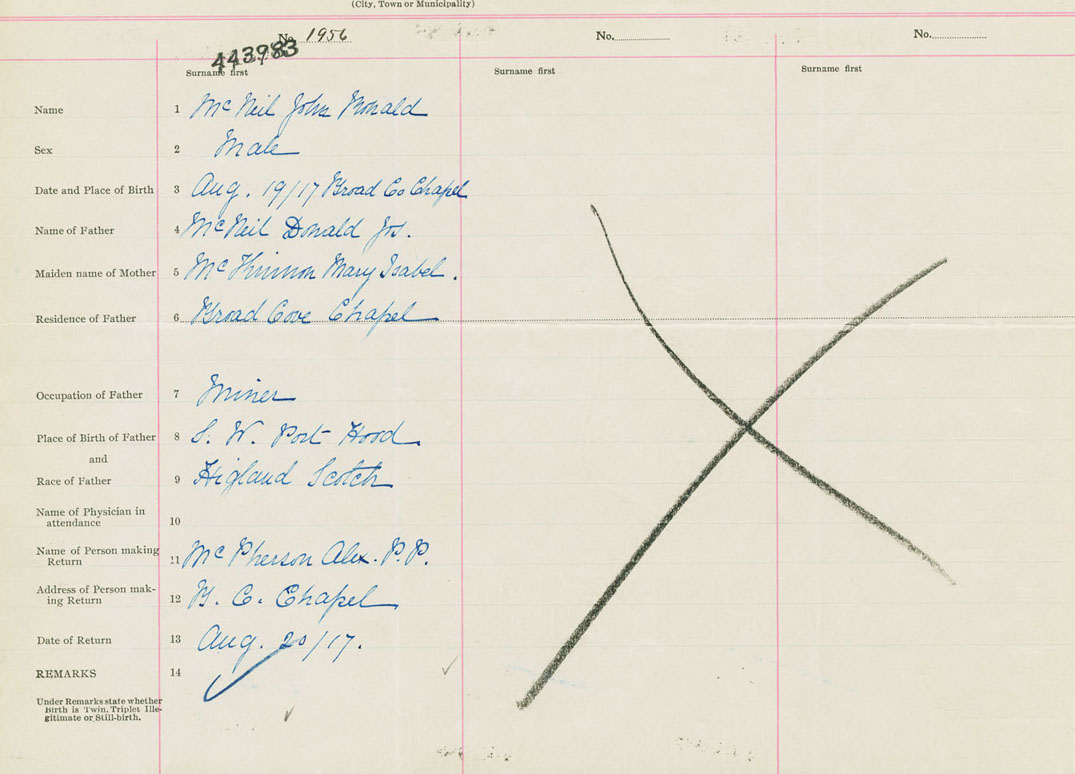 (City, Town or Municipality)
No. 1956 No. No.
443983
Surname first Surname first Surname first
Name 1 McNeil John Ronald
Sex 2 Male
Date and Place of Birth 3 Aug. 19/17 Broad Co Chapel
Name of Father 4 McNeil Donald Jos.
Maiden name of Mother 5 McKinnon Mary Isabel.
Residence of Father 6 Broad Cove Chapel
Occupation of Father 7 Miner
Place of Birth of Father 8 S. W. Port Hood.
and
Race of Father 9 Higland Scotch
Name of Physician in
attendance 10
Name of Person making
Return 11 McPherson Alex. P.P.
Address of Person mak-
ing Return 12 B. C. Chapel
Date of Return 13 Aug. 20/17.
REMARKS 14
Under Remarks state whether
Birth is Twin, Triplet Ille-
gitimate or Still-birth.